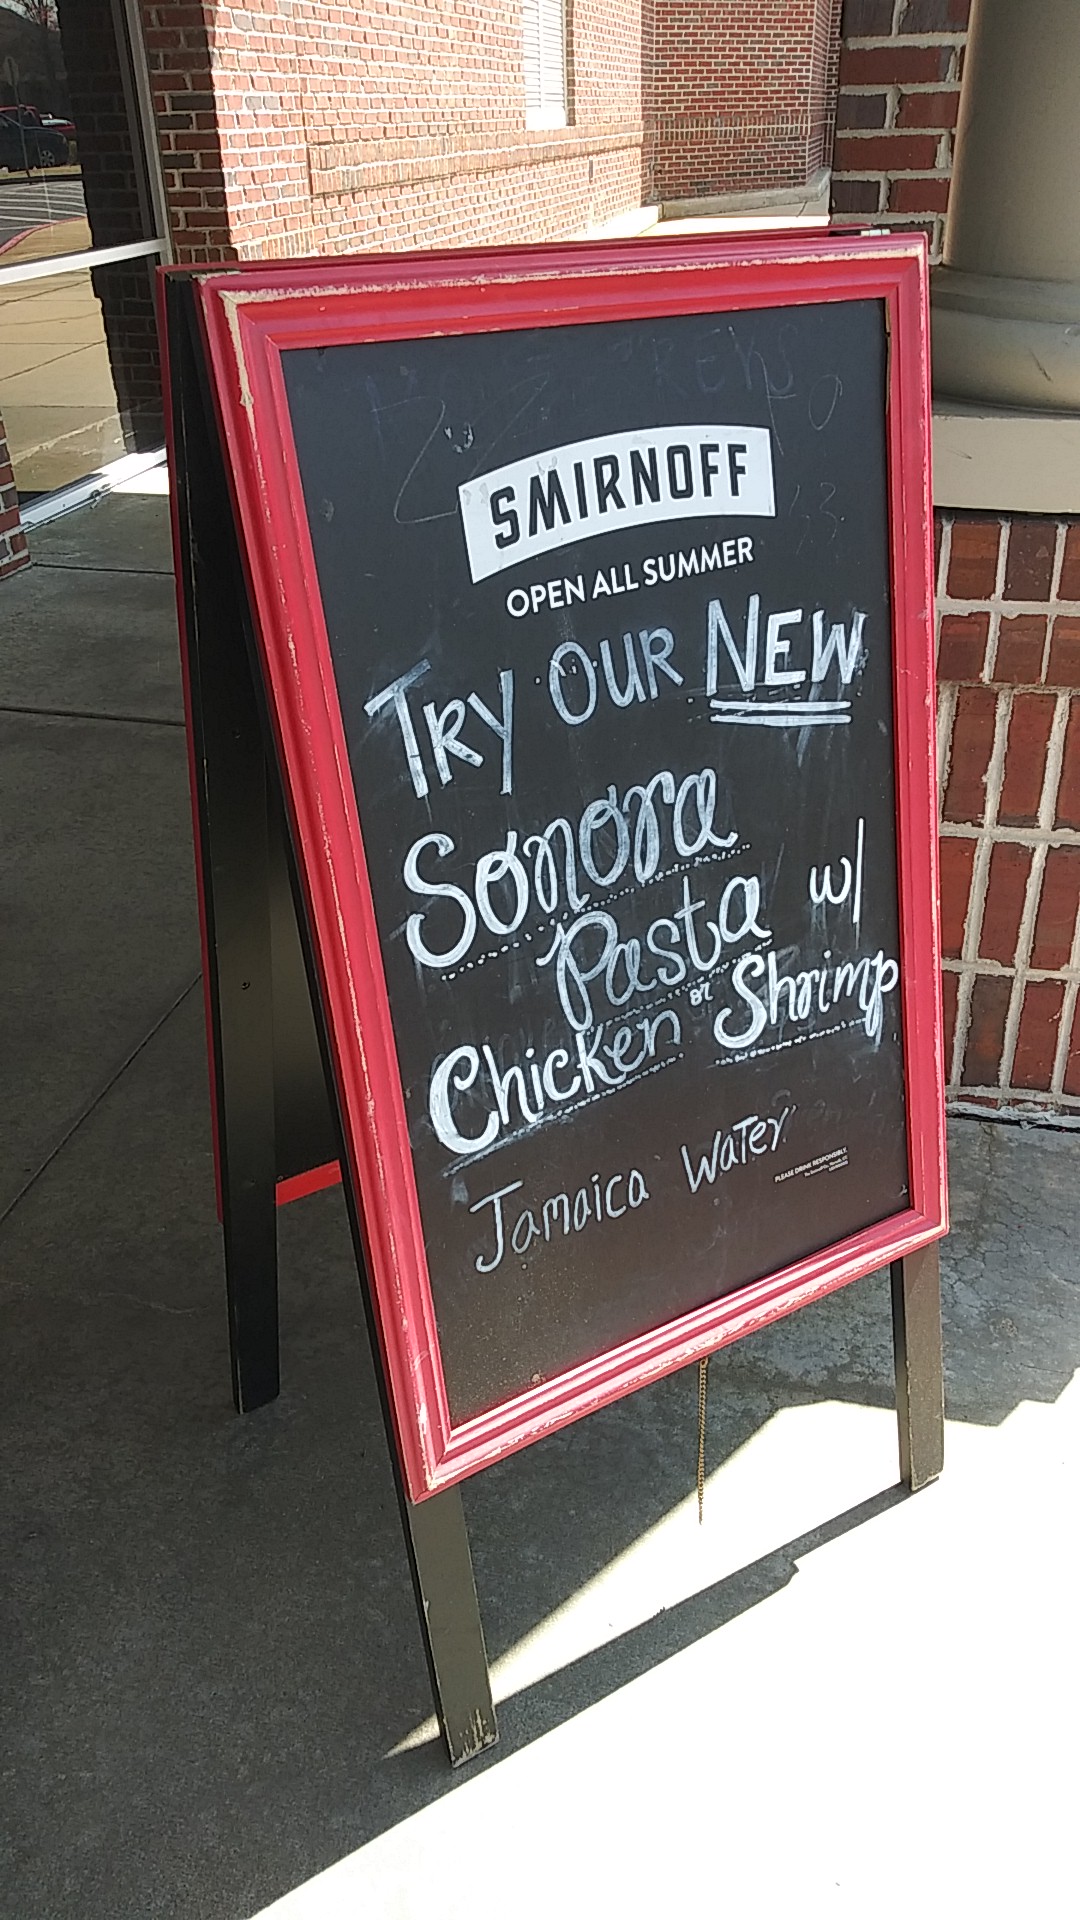 SMIRNOFF
OPEN ALL SUMMER
TRY OUR NEW
Sonora
Pasta w/
Chicken or Shrimp
Jamaica Water
PLEASE DRINK RESPONSIBLY.